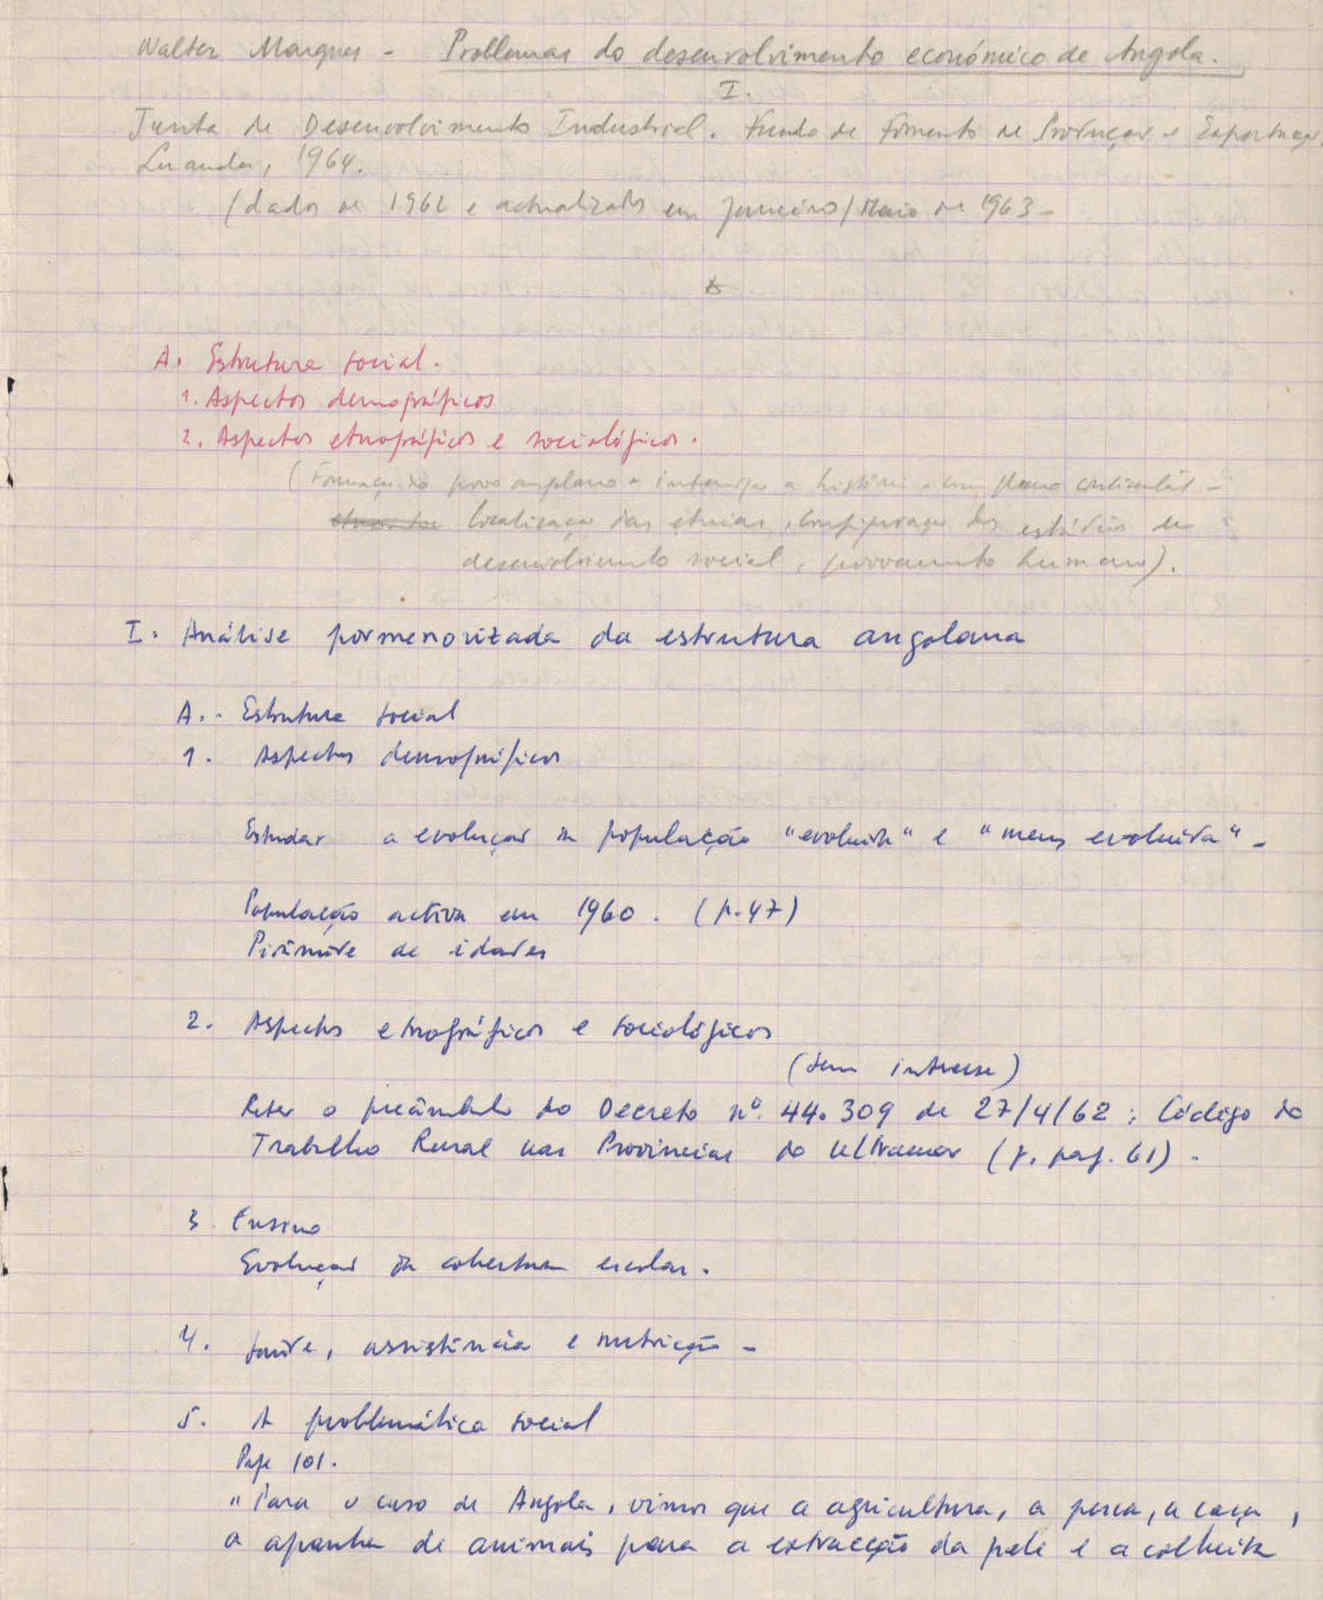 Walter Marques - Problemas do desenvolvimento económico de Angola.
I.
Junta de Desenvolvimento Industrial. Fundo de Fomento de Produção e Exportação,
Luanda, 1964.
(dados de 1962 e actualizados em Janeiro/Maio de 1963 -
A. Estrutura social.
1. Aspectos demográficos
2. Aspectos etnográficos e sociológicos.
(Formação do povo angolano a história e um plano continental -
localização das etnias, configuração dos estádios de
desenvolvimento social, povoamento humano).
I. Análise pormenorizada da estrutura angolana
A. - Estrutura social
1. Aspectos demográficos
Estudar a evolução da população "evoluída" e "menos evoluída" -
População activa em 1960. (p. 47)
Pirâmide de idades
2. Aspectos etnográficos e sociológicos
(sem interesse)
Reter o preâmbulo do Decreto nº. 44.309 de 27/4/62 : Código do
Trabalho Rural nas Províncias do Ultramar (v. pag. 61) -
3. Ensino
Evolução da cobertura escolar.
4. Saúde, assistência e nutrição -
5. A problemática social
Page 101.
"Para o caso de Angola, vimos que a agricultura, a pesca, a caça,
a apanha de animais para a extracção da pele e a colheita